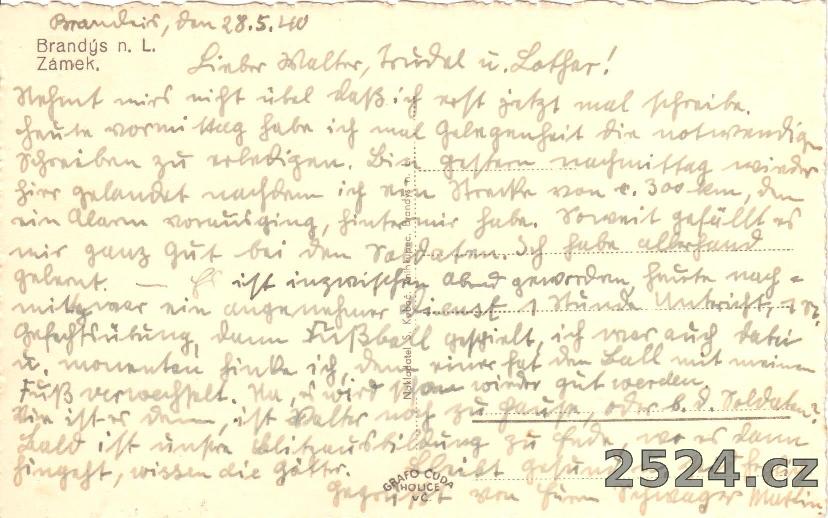 Brandeis, den 28.5.40
Brandýs n. L.
Zámek.
Lieber Walter, Trudel u. Lothar!
Nehmt mirs nicht übel daß ich erst jetzt mal schreibe.
Heute vormittag habe ich mal Gelegenheit die notwendigen
Schreiben zu erledigen. Bin gestern nachmittag wieder
hier gelandet nachdem ich ein Strecke von c. 300 km, dem
ein Alarm vorausging, hinter mir habe. Soweit gefällt es
mir ganz gut bei den Soldaten. Ich habe allerhand
gelernt. — Es ist inzwischen Abend geworden, heute nach-
mittag war ein angenehmer Dienst 1 Stunde Unterricht, 1 St.
Gefechtsübung, dann Fußball gespielt, ich war auch dabei
u. momentan hinke ich, denn einer hat den Ball mit meinem
Fuß verwechselt. Na, es wird schon wieder gut werden.
Wie ist es denn, ist Walter noch zu Hause, oder b. d. Soldaten?
Bald ist unsre Blitzausbildung zu Ende, wo es dann
hingeht, wissen die Götter. Bleibt gesund und
Gegrüßt von Eurem Schwager
Nakladatel S. knihkupec, Brandýs n. L.
GRAFO ČUDA
HOLICE
V Č.
2524.cz